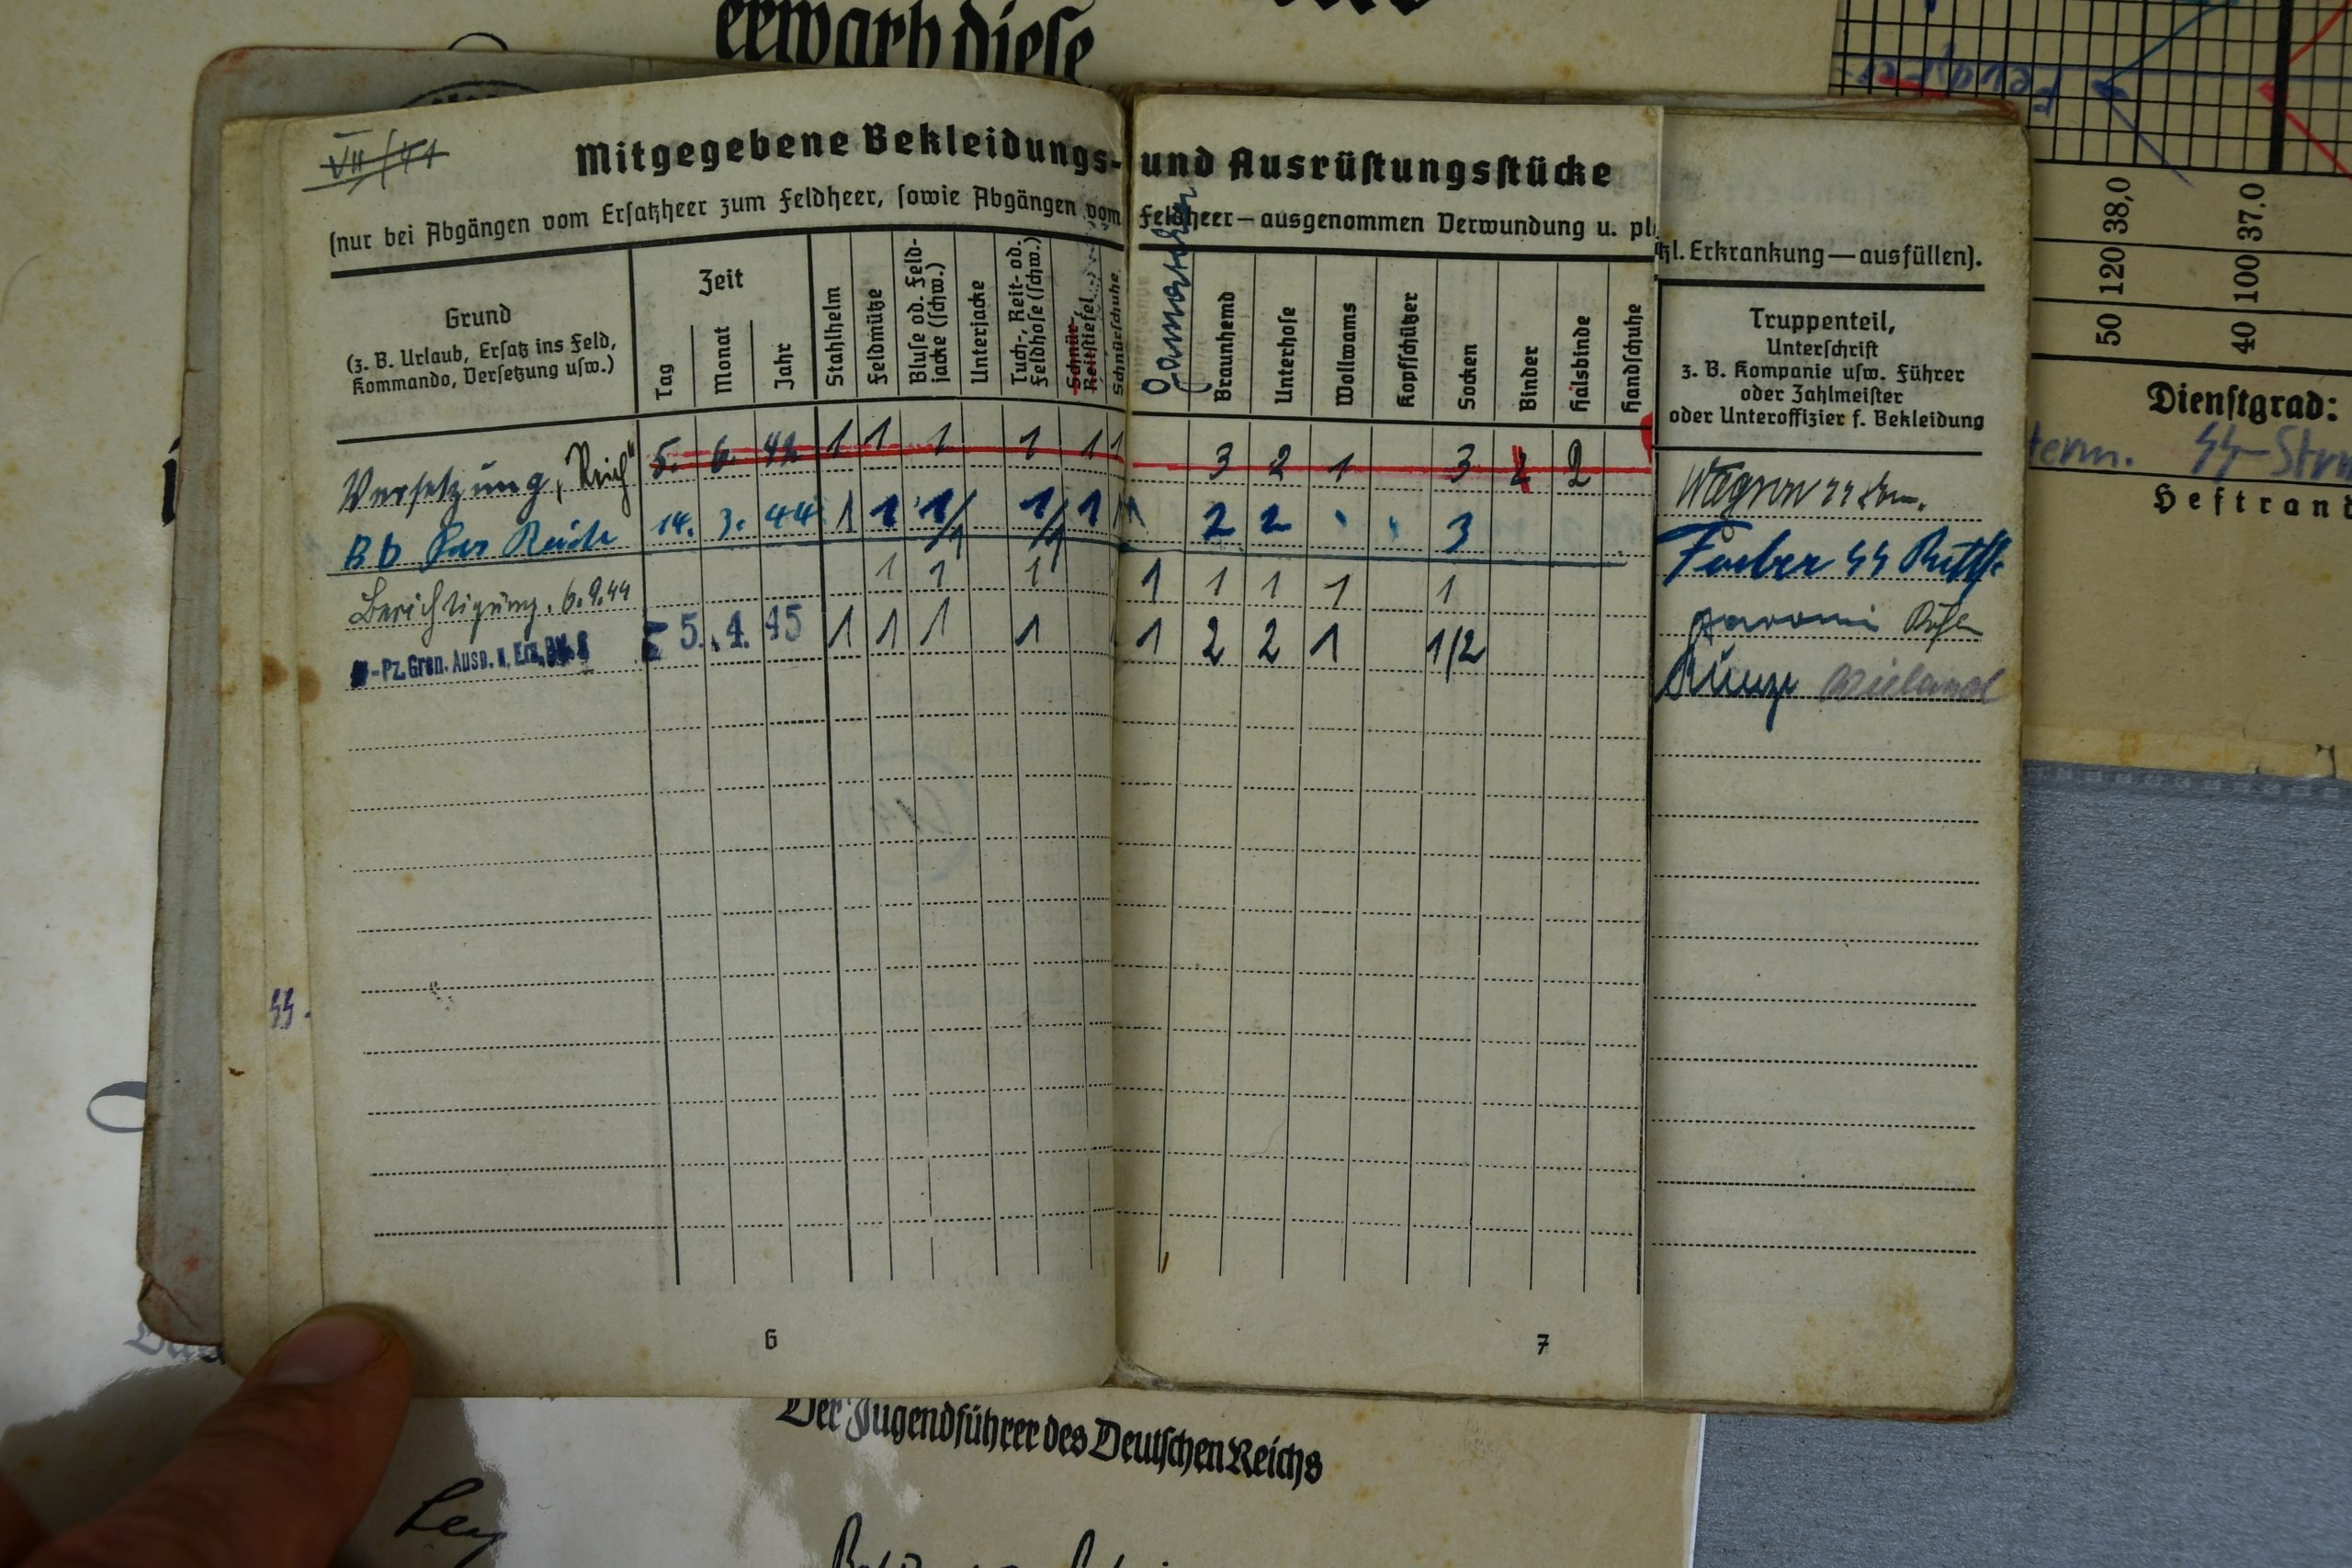 erwarb diese
VII/41
Mitgegebene Bekleidungs- und Ausrüstungsstücke
(nur bei Abgängen vom Ersatzheer zum Feldheer, sowie Abgängen vom Feldheer — ausgenommen Verwundung u. pl
kl. Erkrankung — ausfüllen).
Grund
(z. B. Urlaub, Ersatz ins Feld,
Kommando, Versetzung usw.)
Zeit
Tag
Monat
Jahr
Stahlhelm
Feldmütze
Bluse od. Feld-
jacke (schw.)
Unterjacke
Tuch-, Reit- od.
Feldhose (schw.)
Schnür-,
Reitstiefel
Schnürschuhe
Gamaschen
Braunhemd
Unterhose
Wollwams
Kopfschützer
Socken
Binder
Halsbinde
Handschuhe
Truppenteil,
Unterschrift
z. B. Kompanie usw. Führer
oder Zahlmeister
oder Unteroffizier f. Bekleidung
Versetzung „Reich" 5. 6. 42 1 1 1 1 1 1 3 2 1 3 2
Das Reich 14. 3. 44 1 1 1/1 1/1 1 1 2 2 3
Berichtigung. 6.9.44 1 1 1 1 1 1 1 1
-Pz. Gren. Ausb. u. Ers. 5. 4. 45 1 1 1 1 1 2 2 1 1/2
Wieland
6
7
38,0
37,0
120
100
50
40
Dienstgrad:
Heftrand
Der Jugendführer des Deutschen Reichs